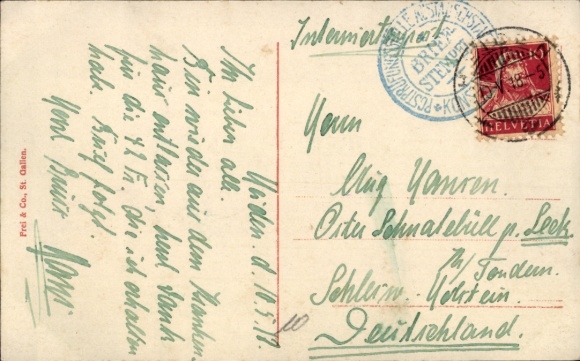 Heiden. d. 10.5.18.
Ihr lieben all.
Bin wieder aus dem Kranken-
haus entlassen, heut Dank
für die 42 M, die ich erhalten
hab. Brief folgt.
Herzl. Gruss
Frei & Co., St. Gallen.
Interniertenpost
BRIEF
STEMPEL
10
HELVETIA
Herrn
Aug Hansen
Oster Schnatebüll p. Leck
Kr/ Tondern.
Schlesw. Holstein.
Deutschland.
10